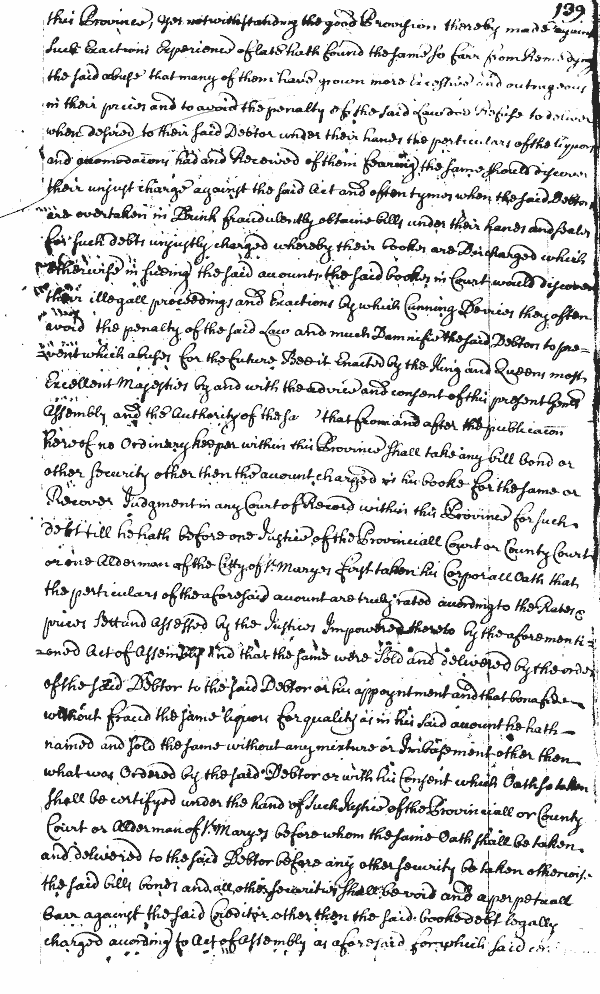 139
this Province, Yet notwithstanding the good Provision thereby made against
such Exactions Experience of late hath found the same so farr from Remedying
the said abuse that many of them have grown more Excessive and outrageous
in their prices and to avoid the penalty of the said Law doe Refuse to deliver
when desired to their said Debtor under their hands the perticulars of the liquors
and accomodacons had and Received of them fearing the same should discover
their unjust charge against the said Act and often tymes when the said Debtors
are overtaken in Drink fraudulently obtaine bills under their hands and seales
for such debts unjustly charged whereby their bookes are Discharged which
otherwise in sueing the said accounts the said bookes in Court would discover
their illegall proceedings and Exactions by which Cunning Devices they often
avoid the penalty of the said Law and much Damnifie the said Debtors to pre=
=vent which abuses for the future Bee it Enacted by the King and Queens most
Excellent Majesties by and with the advice and consent of this present Genll
Assembly and the Authority of the sa that from and after the publicacon
hereof no Ordinary keeper within this Province shall take any bill bond or
other security other then the account charged in his booke for the same or
Recover Judgment in any Court of Record within this Province for such
debt till he hath before one Justice of the Provinciall Court or County Court
or one Alderman of the Citty of St Maryes first taken his Corporall Oath that
the perticulars of the aforesaid account are truly rated according to the Rates &
prices Sett and Assessed by the Justices Impowered thereto by the aforementi=
=oned Act of Assembly And that the same were sold and delivered by the order
of the said Debtor to the said Debtor or his appoyntment and that bonafide
without fraud the same liquors for quality as in his said account he hath
named and sold the same without any mixture or Imbasement other then
what was Ordered by the said Debtor or with his Consent which Oath so taken
shall be certifyed under the hand of such Justice of the Provinciall or County
Court or Alderman of St Maryes before whom the same Oath shall be taken
and delivered to the said Debtor before any other security be taken otherwise
the said bills bonds and all other securities shall be void and a perpetuall
barr against the said Creditor other then the said booke debt legally
charged according to Act of Assembly as aforesaid for which said